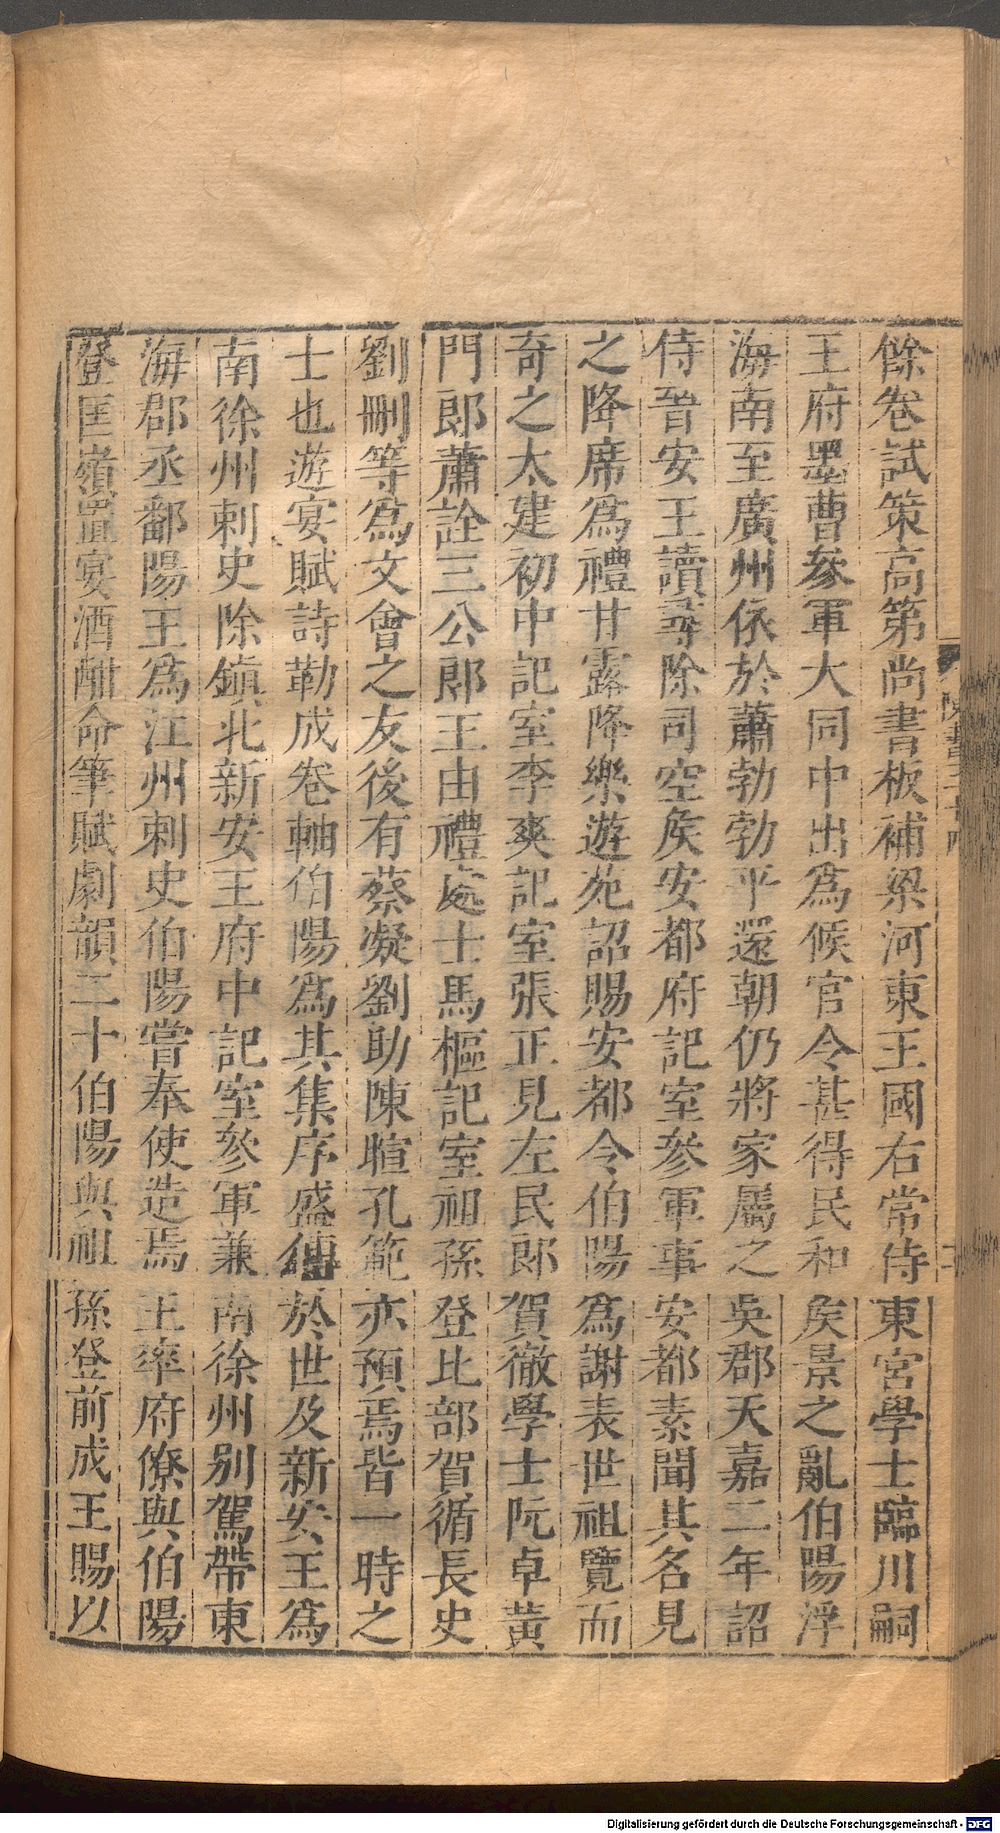 餘卷試策高第尚書板補梁河東王國右常侍東宮學士臨川嗣
王府墨曹參軍大同中出為候官令甚得民和矦景之亂伯陽浮
海南至廣州依於蕭勃勃平還朝仍將家屬之吳郡天嘉二年詔
侍晉安王讀尋除司空矦安都府記室參軍事安都素聞其名見
之降席為禮甘露降樂遊苑詔賜安都令伯陽為謝表世祖覽而
奇之太建初中記室李爽記室張正見左民郎賀徹學士阮卓黃
門郎蕭詮三公郎王由禮處士馬樞記室祖孫登比部賀循長史
劉刪等為文會之友後有蔡凝劉助陳暄孔範亦預焉皆一時之
士也遊宴賦詩勒成卷軸伯陽為其集序盛傳於世及新安王為
南徐州刺史除鎮北新安王府中記室參軍兼南徐州別駕帶東
海郡丞鄱陽王為江州刺史伯陽嘗奉使造焉王率府僚與伯陽
登匡嶺置宴酒酣命筆賦劇韻二十伯陽與祖孫登前成王賜以
Digitalisierung gefördert durch die Deutsche Forschungsgemeinschaft - DFG